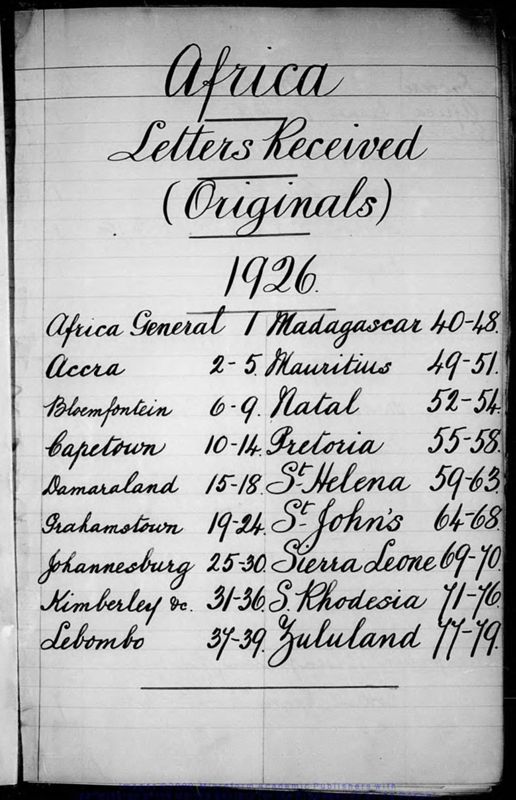 Africa
Letters Received
(Originals)
1926.
Africa General 1 Madagascar 40-48.
Accra 2-5. Mauritius 49-51.
Bloemfontein 6-9. Natal 52-54.
Capetown 10-14. Pretoria 55-58.
Damaraland 15-18. St. Helena 59-63.
Grahamstown 19-24. St. John's 64-68.
Johannesburg 25-30. Sierra Leone 69-70.
Kimberley &c. 31-36. S. Rhodesia 71-76.
Lebombo 37-39. Zululand 77-79.